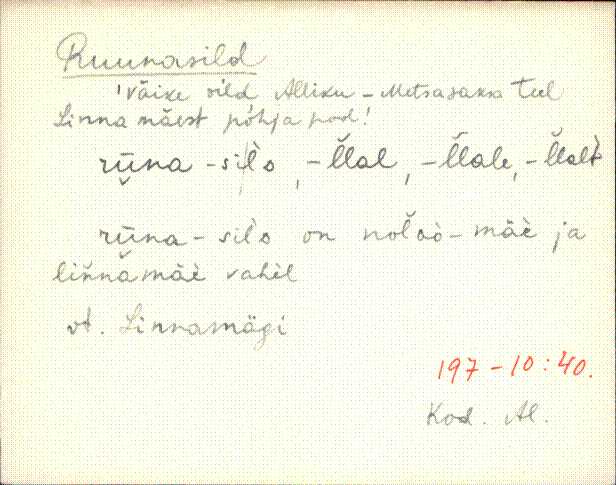 Ruunasild
'väike sild Alliku - Metsasaksa teel
Linnamäest põhja pool'
rūna - sil̀ɒ, - l̆lal, - l̆lale, - l̆lalt
rūna - sil̀ɒ on nol̆ɢò - mäè ja
lin̆nämäè vahèl
vt. Linnamägi
197 - 10 : 40.
Kod. Al.